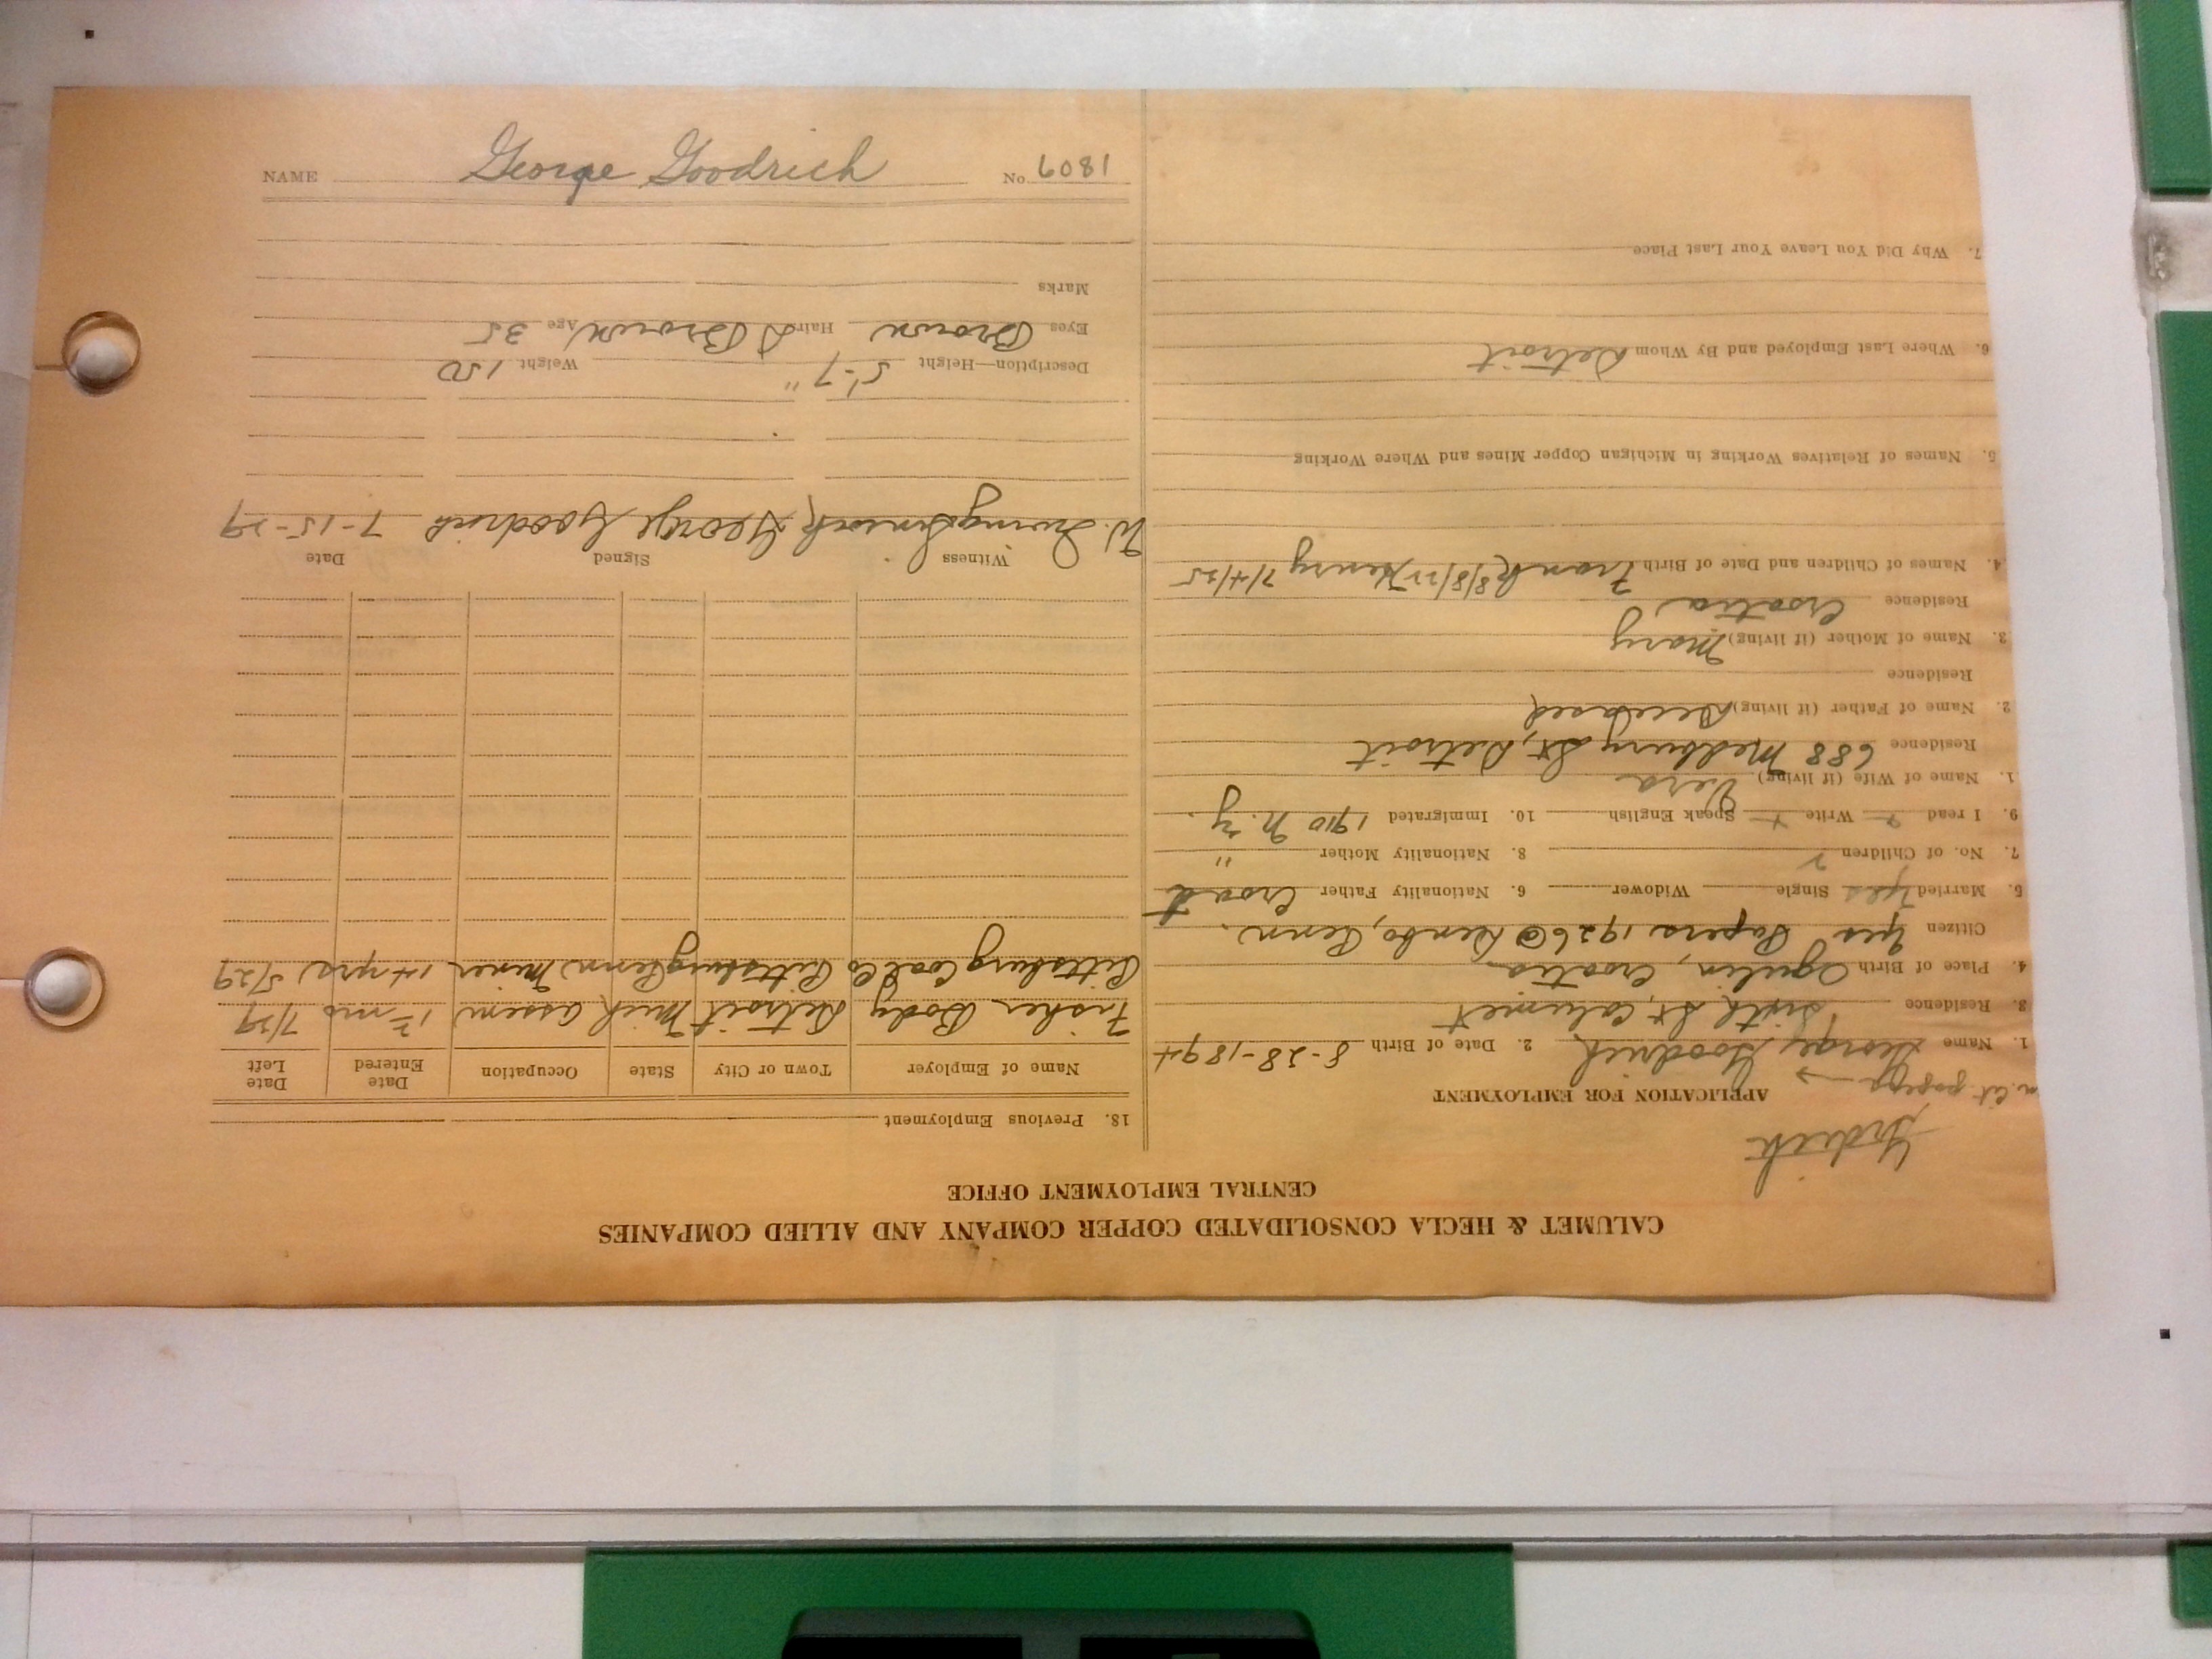 NAME George Goodrich No 6081
CALUMET & HECLA CONSOLIDATED COPPER COMPANY AND ALLIED COMPANIES
CENTRAL EMPLOYMENT OFFICE
Godrich
APPLICATION FOR EMPLOYMENT
cit papers →
1. Name George Goodrich 2. Date of Birth 8-28-1894
3. Residence Sixth St, Calumet
4. Place of Birth Ogulin, Croatia
Citizen Yes Papers 1926 @ Penn.
5. Married Yes Single Widower 6. Nationality Father Croat
7. No. of Children 2 8. Nationality Mother "
9. I read + Write + Speak English 10. Immigrated 1910 N.Y.
1. Name of Wife (if living) Vera
Residence 688 Medbury St, Detroit
2. Name of Father (if living) Deceased
Residence
3. Name of Mother (if living) Mary
Residence Croatia
4. Names of Children and Date of Birth Frank 8/8/22 Henry 7/4/25
5. Names of Relatives Working in Michigan Copper Mines and Where Working
6. Where Last Employed and By Whom Detroit
7. Why Did You Leave Your Last Place
18. Previous Employment
Name of Employer Town or City State Occupation Date Entered Date Left
Fisher Body Detroit Mich assem 1 1/2 mo 7/29
Pittsburg Coal Co Pittsburg Penn Miner 14 yrs 5/29
Witness Signed Date
W. Irving George Goodrich 7-15-29
Description—Height 5'-7" Weight 150
Eyes Brown Hair D Brown Age 35
Marks